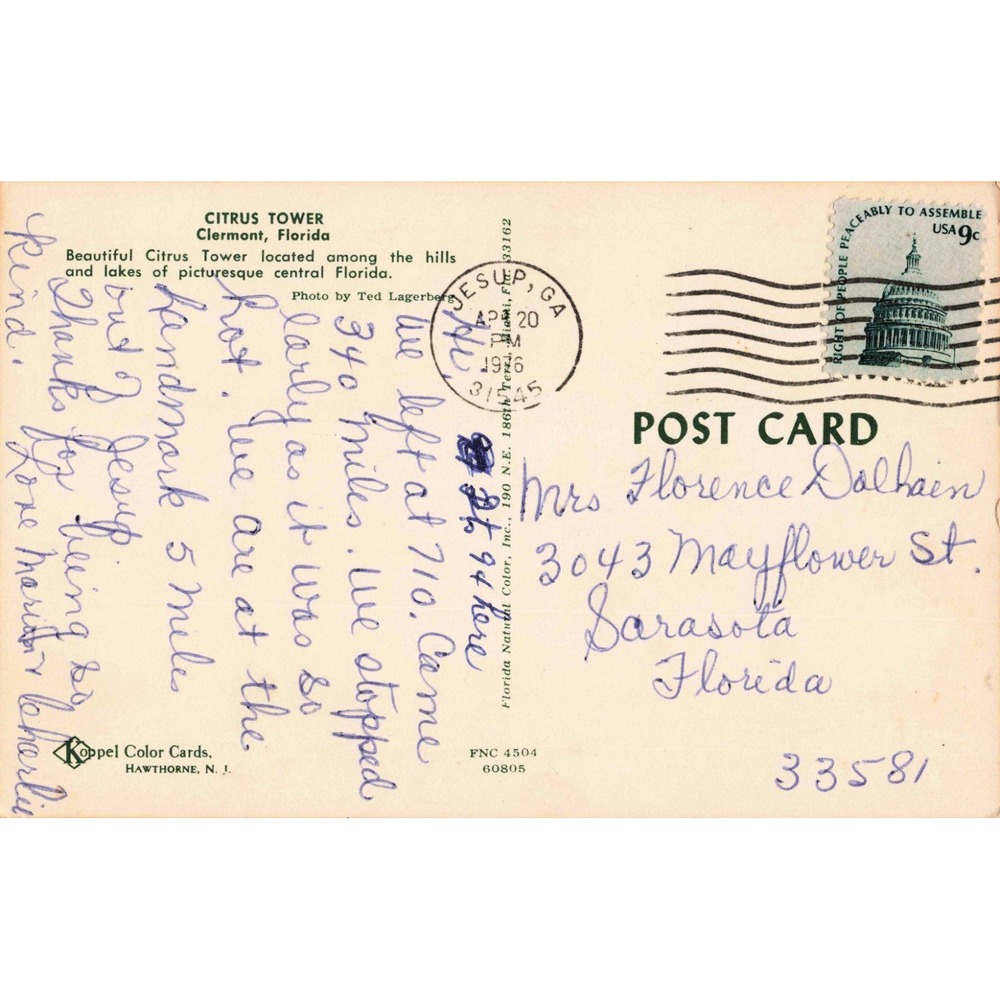 CITRUS TOWER
Clermont, Florida
Beautiful Citrus Tower located among the hills
and lakes of picturesque central Florida.
Photo by Ted Lagerberg
Hi. Its 94 here
We left at 710. Came
340 miles. We stopped
early as it was so
hot. We are at the
Landmark 5 miles
out of Jesup.
Thanks for being so
kind. Love Marion & Charlie
Koppel Color Cards,
HAWTHORNE, N. J.
FNC 4504
60805
Florida Natural Color, Inc., 190 N.E. 186th Terr., Miami, Fla. 33162
JESUP, GA
APR 20
PM
1976
31545
RIGHT OF PEOPLE PEACEABLY TO ASSEMBLE
USA 9c
POST CARD
Mrs Florence Dalhaen
3043 Mayflower St.
Sarasota
Florida
33581